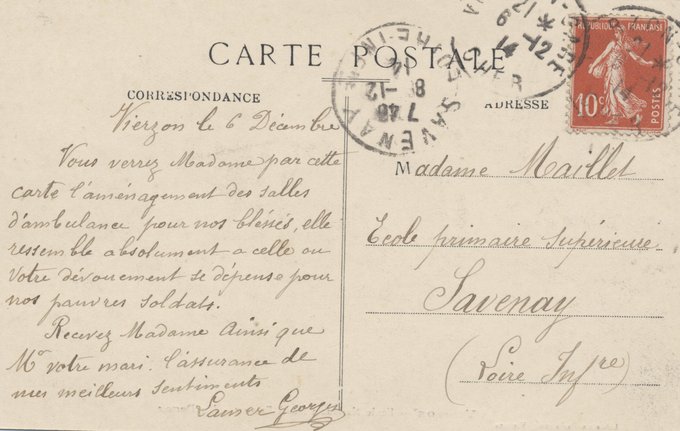 CARTE POSTALE
CORRESPONDANCE
Vierzon le 6 Décembre
Vous verrez Madame par cette
carte l'aménagement des salles
d'ambulance pour nos bléssés, elle
ressemble absolument a celle ou
votre dévouement se dépense pour
nos pauvres soldats.
Recevez Madame Ainsi que
Mr votre mari. l'assurance de
mes meilleurs sentiments
Georges
ADRESSE
Madame Maillet
Ecole primaire supérieure
Savenay
(Loire Infre)
REPUBLIQUE FRANÇAISE
10c
POSTES
21 *
6 -12
14
CHER
SAVENAY
LOIRE-INFRE
7 45
8 -12
14